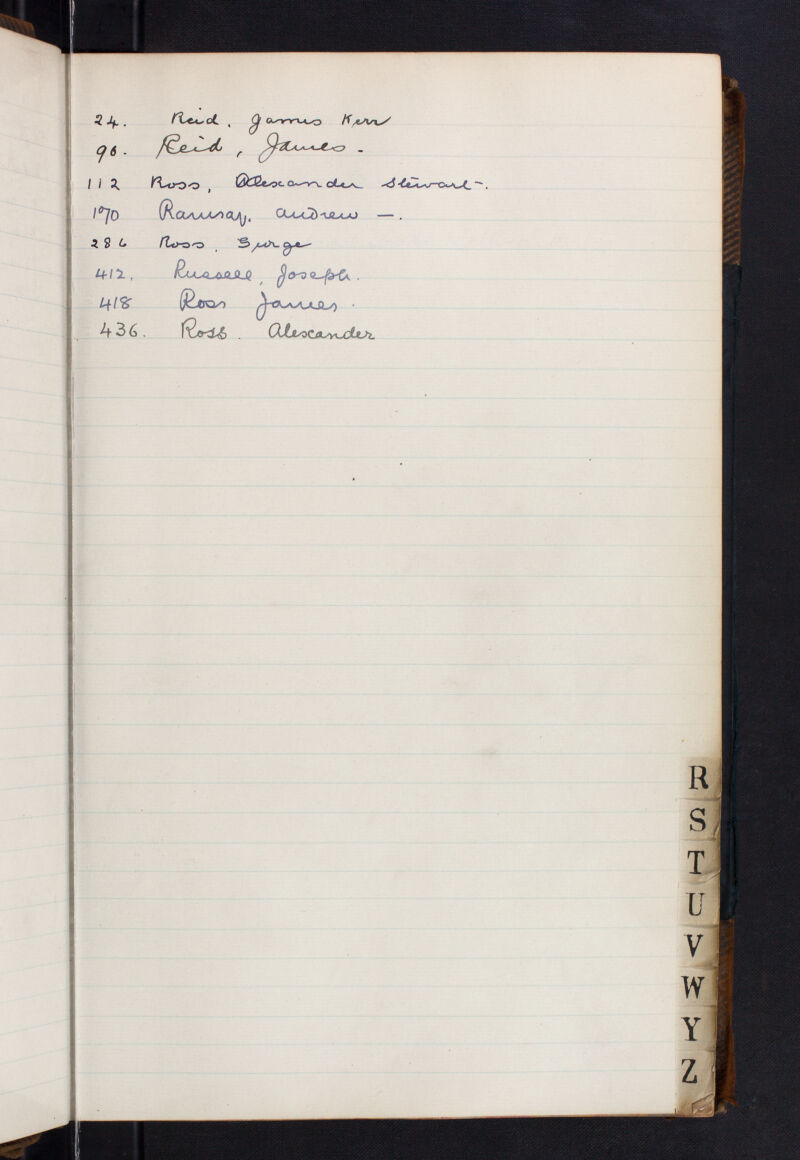 24. Reid. James Kerr
90. Reid, James.
112 Ross, Alexander Stewart.
170 Ramsay. Andrew —.
286 Ross. George
412. Russell, Joseph.
418 Ross James.
436. Ross. Alexander
R
S
T
U
V
W
Y
Z